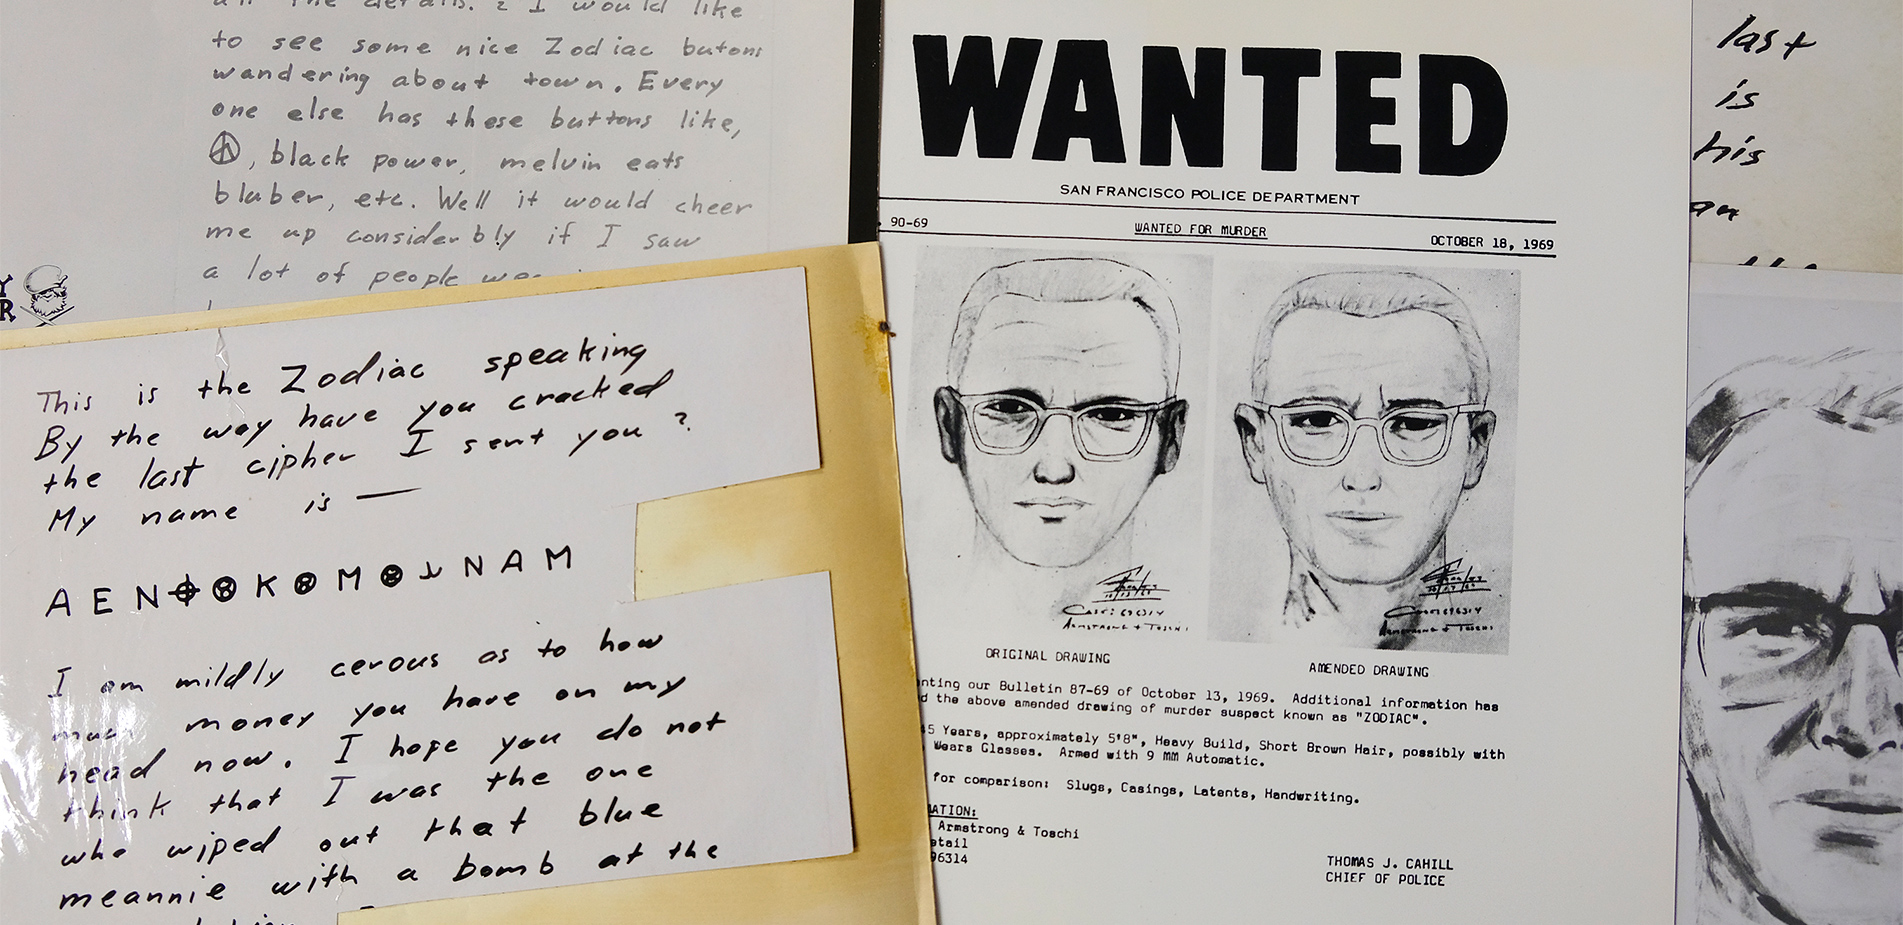 the details. I would like
to see some nice Zodiac butons
wandering about town. Every
one else has these buttons like,
, black power, melvin eats
bluber, etc. Well it would cheer
me up considerbly if I saw
a lot of people
Y
R
This is the Zodiac speaking
By the way have you cracked
the last cipher I sent you ?
My name is —
A E N ⌖ ⊗ K ⊗ M ⊗ N A M
I am mildly cerous as to how
much money you have on my
head now. I hope you do not
think that I was the one
who wiped out that blue
meannie with a bomb at the
WANTED
SAN FRANCISCO POLICE DEPARTMENT
90-69 WANTED FOR MURDER OCTOBER 18, 1969
ORIGINAL DRAWING AMENDED DRAWING
nting our Bulletin 87-69 of October 13, 1969. Additional information has
d the above amended drawing of murder suspect known as "ZODIAC".
45 Years, approximately 5'8", Heavy Build, Short Brown Hair, possibly with
Wears Glasses. Armed with 9 MM Automatic.
for comparison: Slugs, Casings, Latents, Handwriting.
MATION:
Armstrong & Toschi
etail
96314
THOMAS J. CAHILL
CHIEF OF POLICE
last
is
his
an